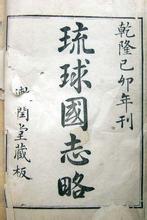 乾隆己卯年刊
琉球國志略
漱潤堂藏板